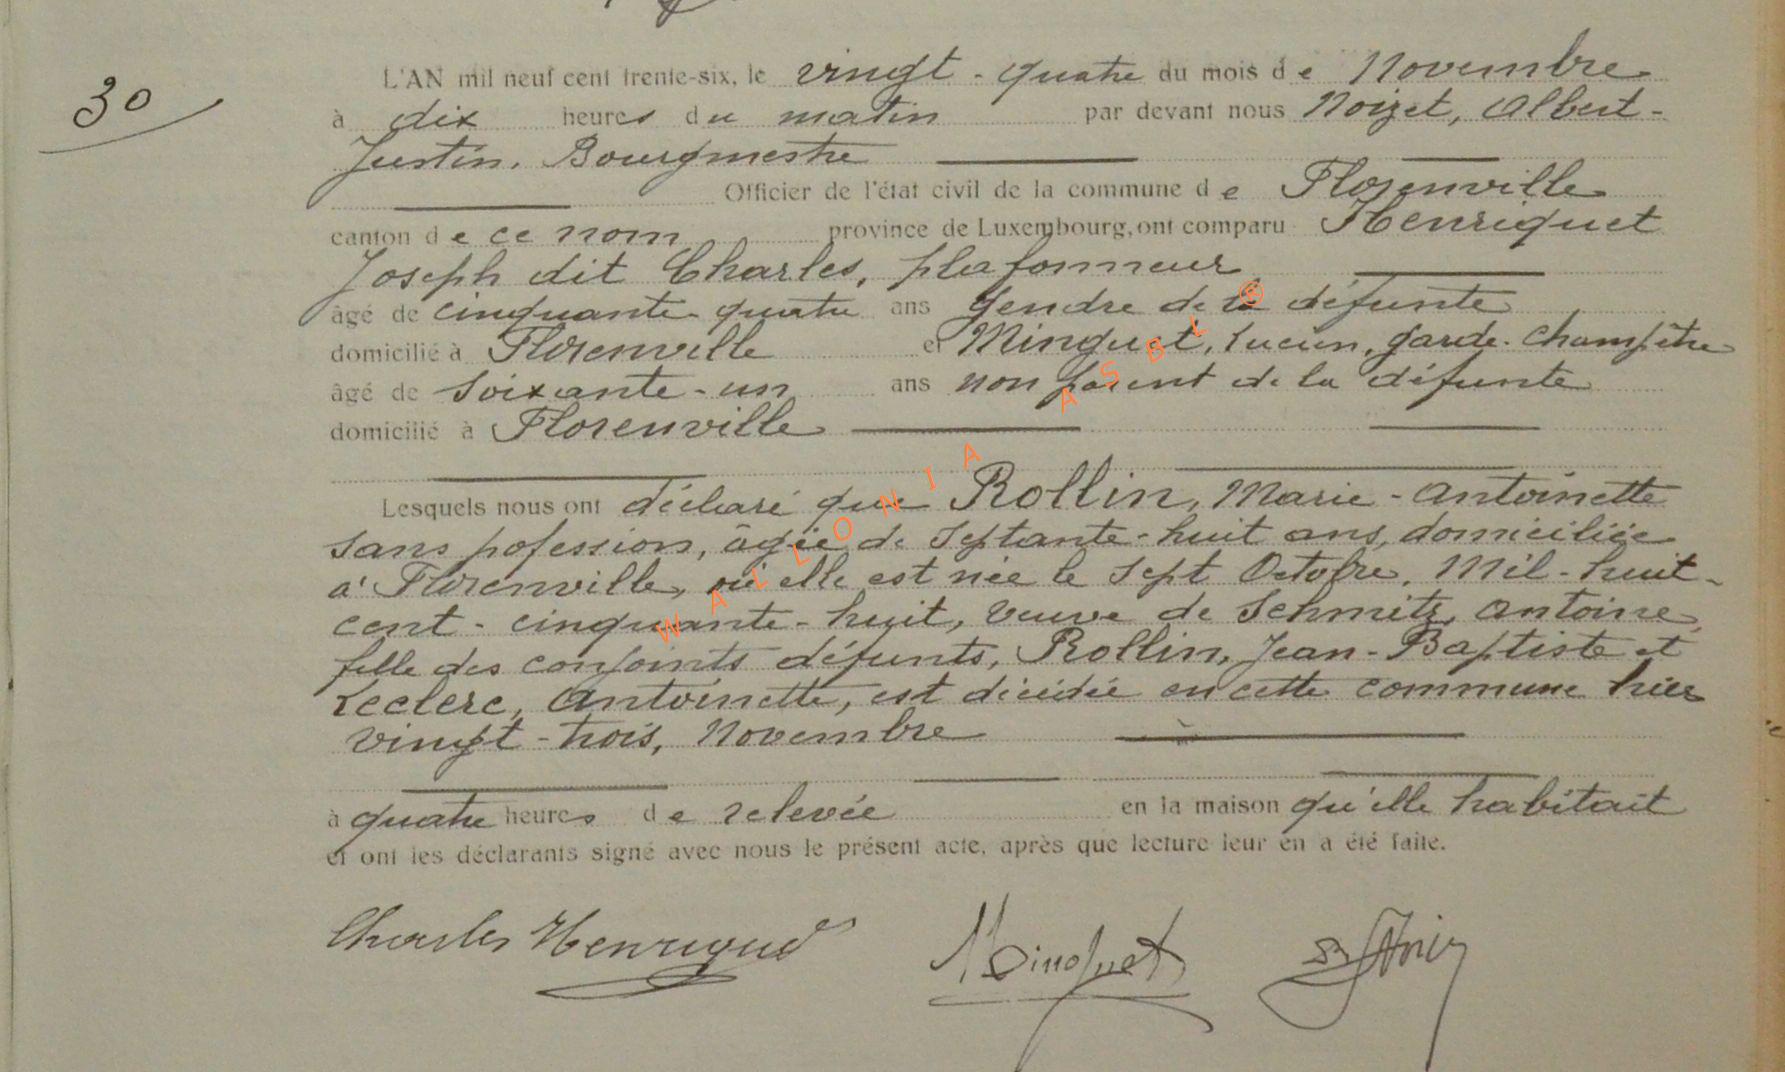 30
L'AN mil neuf cent trente-six, le vingt-quatre du mois de Novembre
à dix heures du matin par devant nous Noizet, Albert-
Justin, Bourgmestre
Officier de l'état civil de la commune de Florenville
canton de ce nom province de Luxembourg, ont comparu Henriquet
Joseph dit Charles, plafonneur
âgé de cinquante-quatre ans gendre de la défunte
domicilié à Florenville et Minguet, Lucien, garde-champêtre
âgé de soixante-un ans non parent de la défunte
domicilié à Florenville
Lesquels nous ont déclaré que Rollin, Marie-Antoinette
sans pofession, âgée de septante-huit ans, domiciliée
à Florenville, où elle est née le sept Octobre, Mil-huit-
cent-cinquante-huit, veuve de Schmitz, Antoine,
fille des conjoints défunts, Rollin, Jean-Baptiste et
Leclerc, Antoinette, est décédée en cette commune hier
vingt-trois, Novembre
à quatre heures de relevée en la maison qu'elle habitait
et ont les déclarants signé avec nous le présent acte, après que lecture leur en a été faite.
Charles Henriquet Minguet
WALLONIA ASBL ®